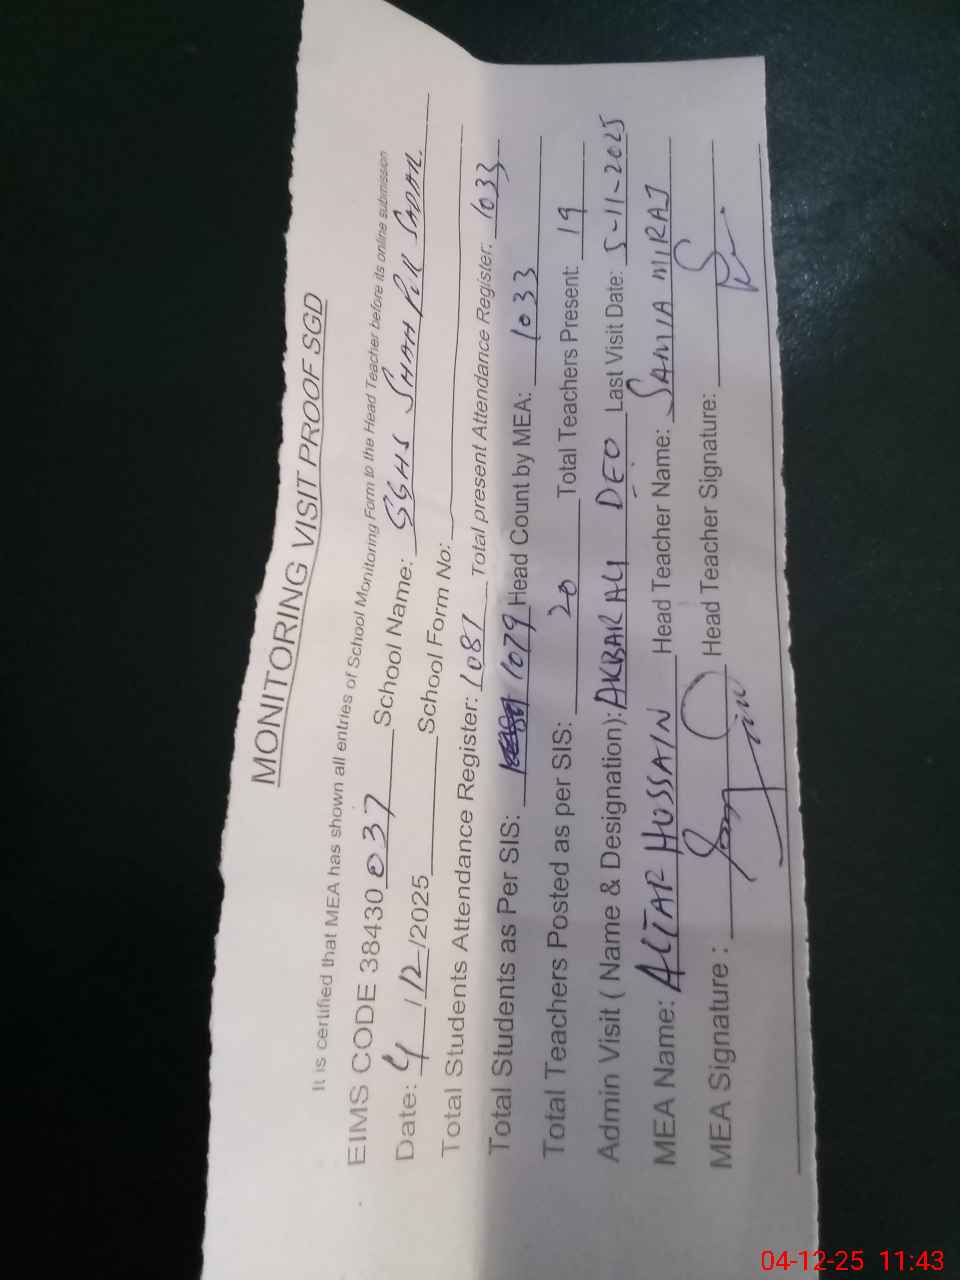 MONITORING VISIT PROOF SGD
It is certified that MEA has shown all entries of School Monitoring Form to the Head Teacher before its online submission
EIMS CODE 38430 037 School Name: GGHS SHAH PUR SADAR.
Date: 4/12/2025 School Form No:
Total Students Attendance Register: 1087 Total present Attendance Register: 1033
Total Students as Per SIS: 1079 Head Count by MEA: 1033
Total Teachers Posted as per SIS: 20 Total Teachers Present: 19
Admin Visit ( Name & Designation): AKBAR ALI DEO Last Visit Date: 5-11-2025
MEA Name: HUSSAIN Head Teacher Name: SAMIA MIRAJ
MEA Signature : Head Teacher Signature:
04-12-25 11:43